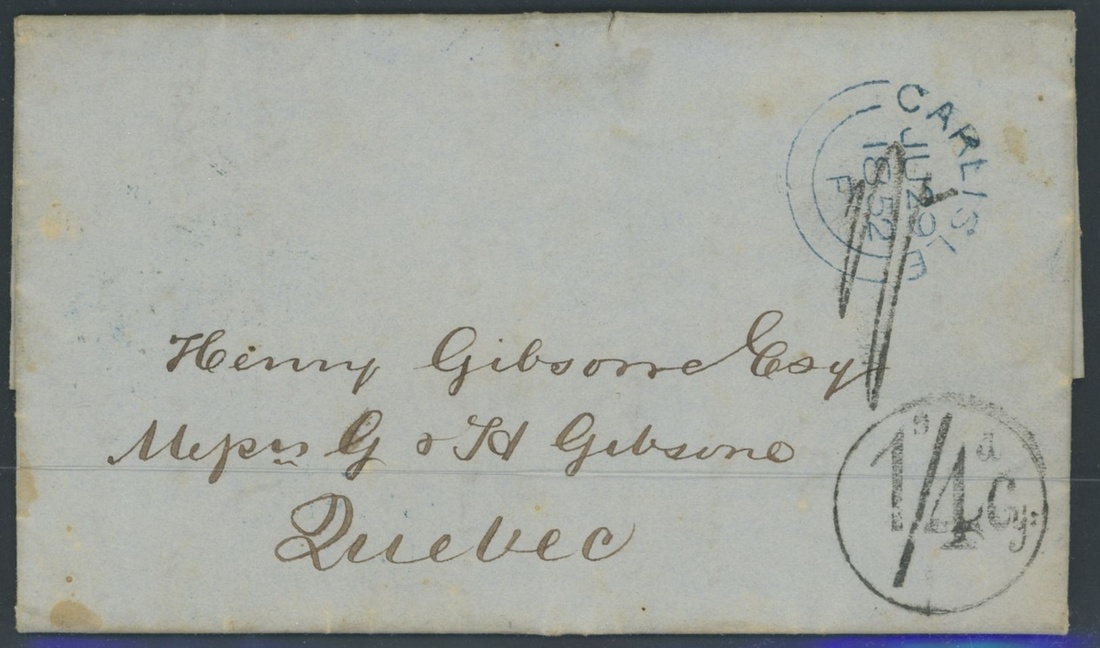 CARLISLE
JU 29
1852
F
Henny Gibsone Esqr
Messrs G & H Gibsone
Quebec
1s/4d Cy: